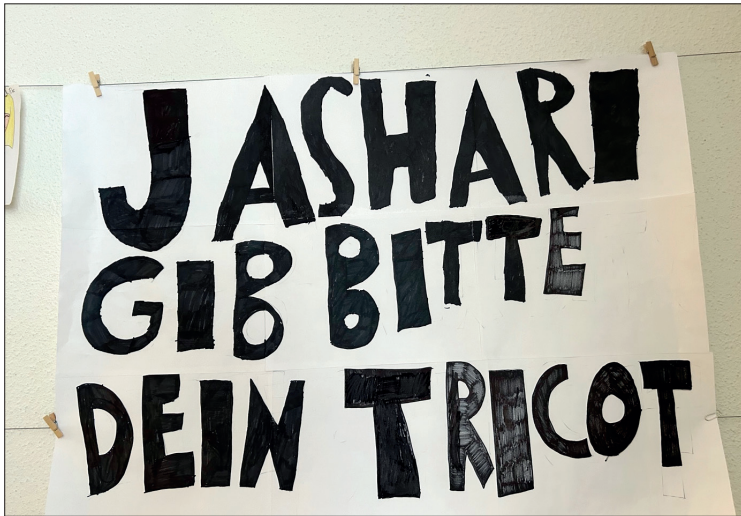 JASHARI
GIB BITTE
DEIN TRICOT